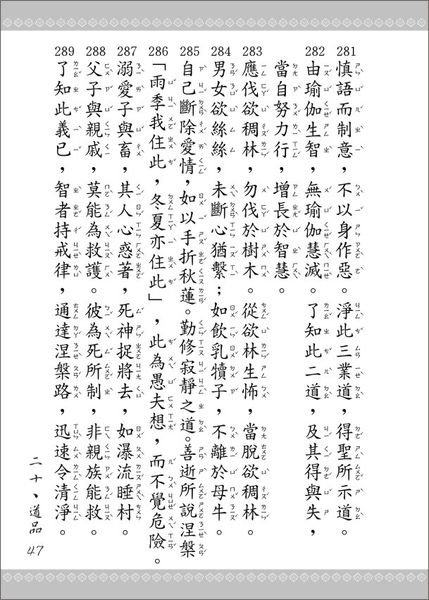 281 慎語而制意，不以身作惡。淨此三業道，得聖所示道。
282 由瑜伽生智，無瑜伽慧滅。了知此二道，及其得與失，
當自努力行，增長於智慧。
283 應伐欲稠林，勿伐於樹木。從欲林生怖，當脫欲稠林。
284 男女欲絲絲，未斷心猶繫；如飲乳犢子，不離於母牛。
285 自己斷除愛情，如以手折秋蓮。勤修寂靜之道。善逝所說涅槃
286 「雨季我住此，冬夏亦住此」，此為愚夫想，而不覺危險。
287 溺愛子與畜，其人心惑著，死神捉將去，如瀑流睡村。
288 父子與親戚，莫能為救護。彼為死所制，非親族能救。
289 了知此義已，智者持戒律，通達涅槃路，迅速令清淨。
二十、道品 47